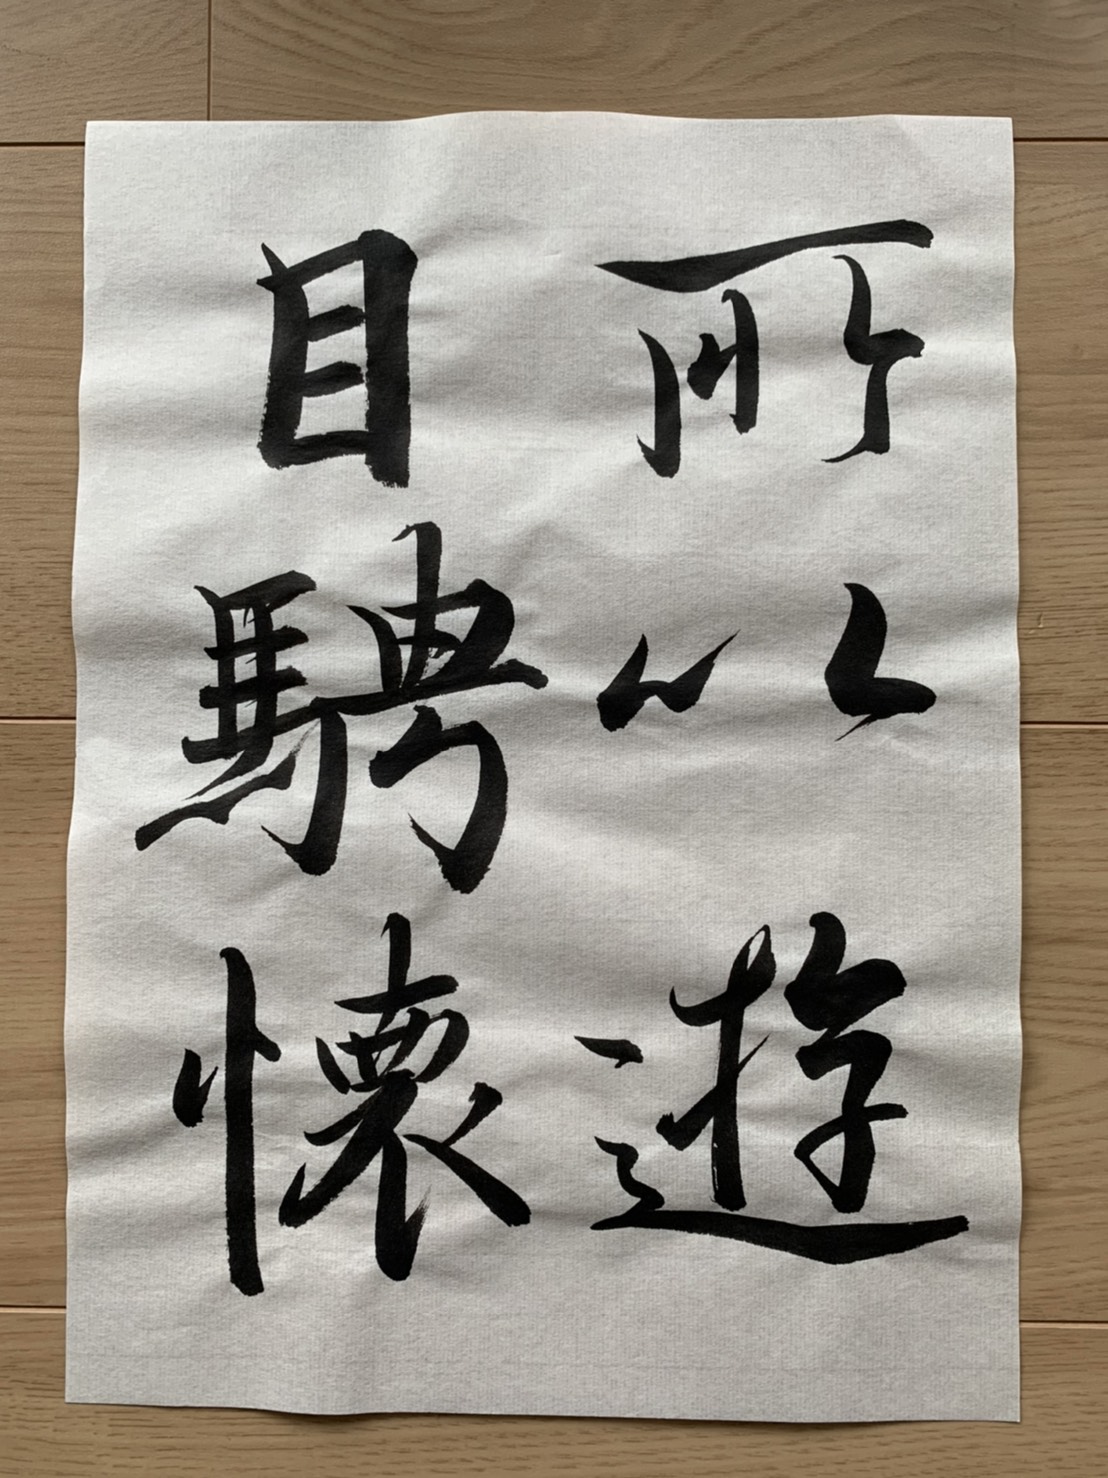 所以遊
目騁懷